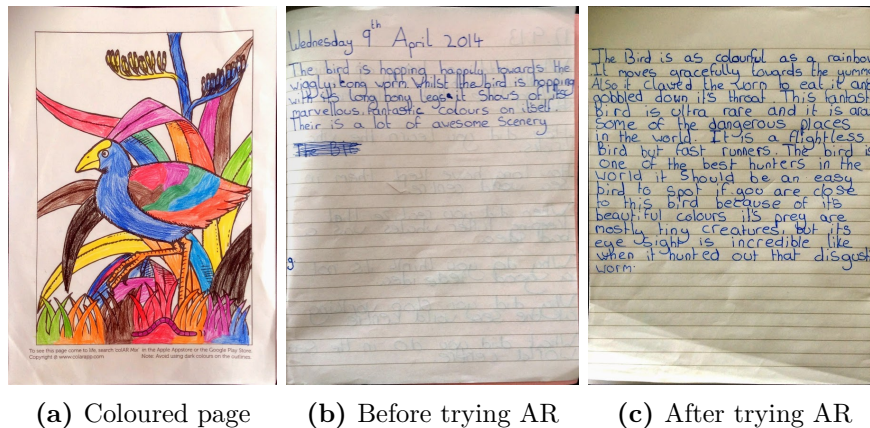 To see this page come to life, search colAR Mix in the Apple Appstore or the Google Play Store.
Copyright @ www.colarapp.com Note: Avoid using dark colours on the outlines.
(a) Coloured page
Wednesday 9th April 2014
The bird is hopping happily towards the
wiggly, long worm. Whilst the bird is hopping
with its long bony legs it shows of its
marvellous, fantastic colours on itself.
Their is a lot of awesome scenery
g
(b) Before trying AR
The Bird is as colourful as a rainbow
It moves gracefully towards the yumm
Also it clawed the worn to eat it an
gobbled down it's throat. This fantast
Bird is ultra rare and it is
some of the dangerous places
in the world. It is a flightless
Bird but fast runners. The bird is
one of the best hunters in the
world it should be an easy
bird to spot if you are close
to this bird because of it's
beautiful colours it's prey are
mostly tiny creatures, but its
eye sight is incredible like
when it hunted out that disgusti
worm.
(c) After trying AR